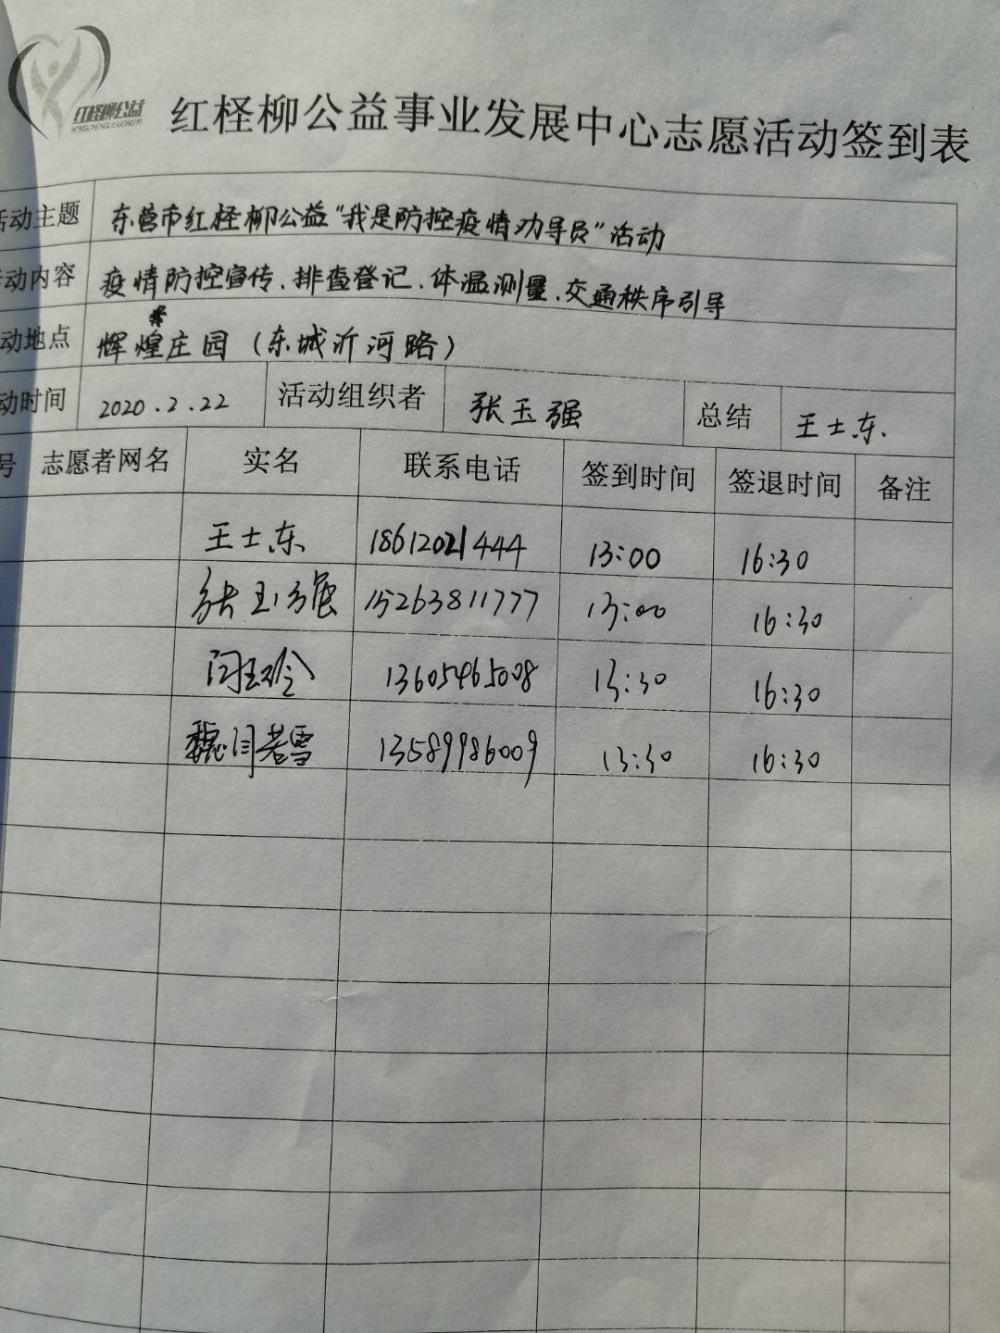 红柽柳公益
红柽柳公益事业发展中心志愿活动签到表
活动主题 东营市红柽柳公益“我是防控疫情劝导员”活动
动内容 疫情防控宣传、排查登记、体温测量、交通秩序引导
动地点 辉煌庄园（东城沂河路）
动时间 2020.2.22 活动组织者 张玉强 总结 王士东.
号 志愿者网名 实名 联系电话 签到时间 签退时间 备注
王士东 18612021444 13:00 16:30
张玉强 15263811777 13:00 16:30
闫玲 13605465008 13:30 16:30
魏闫若雪 13589986009 13:30 16:30